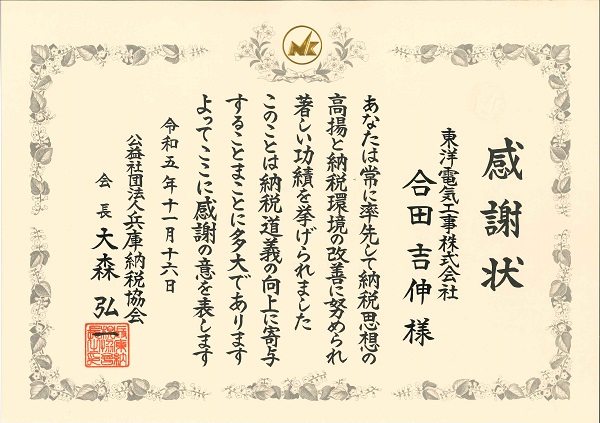 感謝状
東洋電気工事株式会社
合田吉伸様
あなたは常に率先して納税思想の
高揚と納税環境の改善に努められ
著しい功績を挙げられました
このことは納税道義の向上に寄与
することまことに多大であります
よってここに感謝の意を表します
令和五年十一月十六日
公益社団法人兵庫納税協会
会長 大森弘一